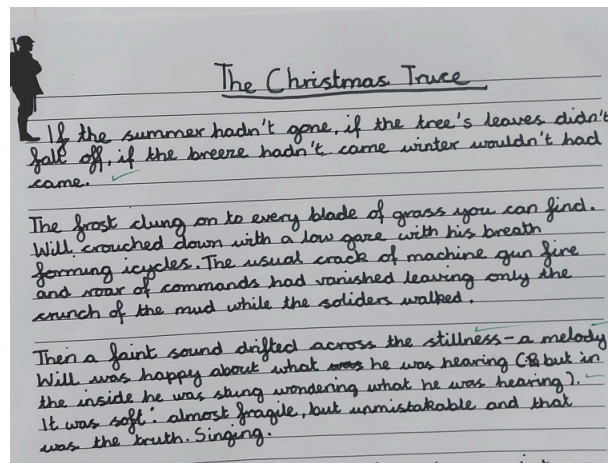 The Christmas Truce
If the summer hadn't gone, if the tree's leaves didn't
fall off, if the breeze hadn't came winter wouldn't had
came.
The frost clung on to every blade of grass you can find.
Will crouched down with a low gaze with his breath
forming icycles. The usual crack of machine gun fire
and roar of commands had vanished leaving only the
crunch of the mud while the soliders walked.
Then a faint sound drifted across the stillness - a melody
Will was happy about what he was hearing (but in
the inside he was stung wondering what he was hearing).
It was soft: almost fragile, but unmistakable and that
was the truth. Singing.